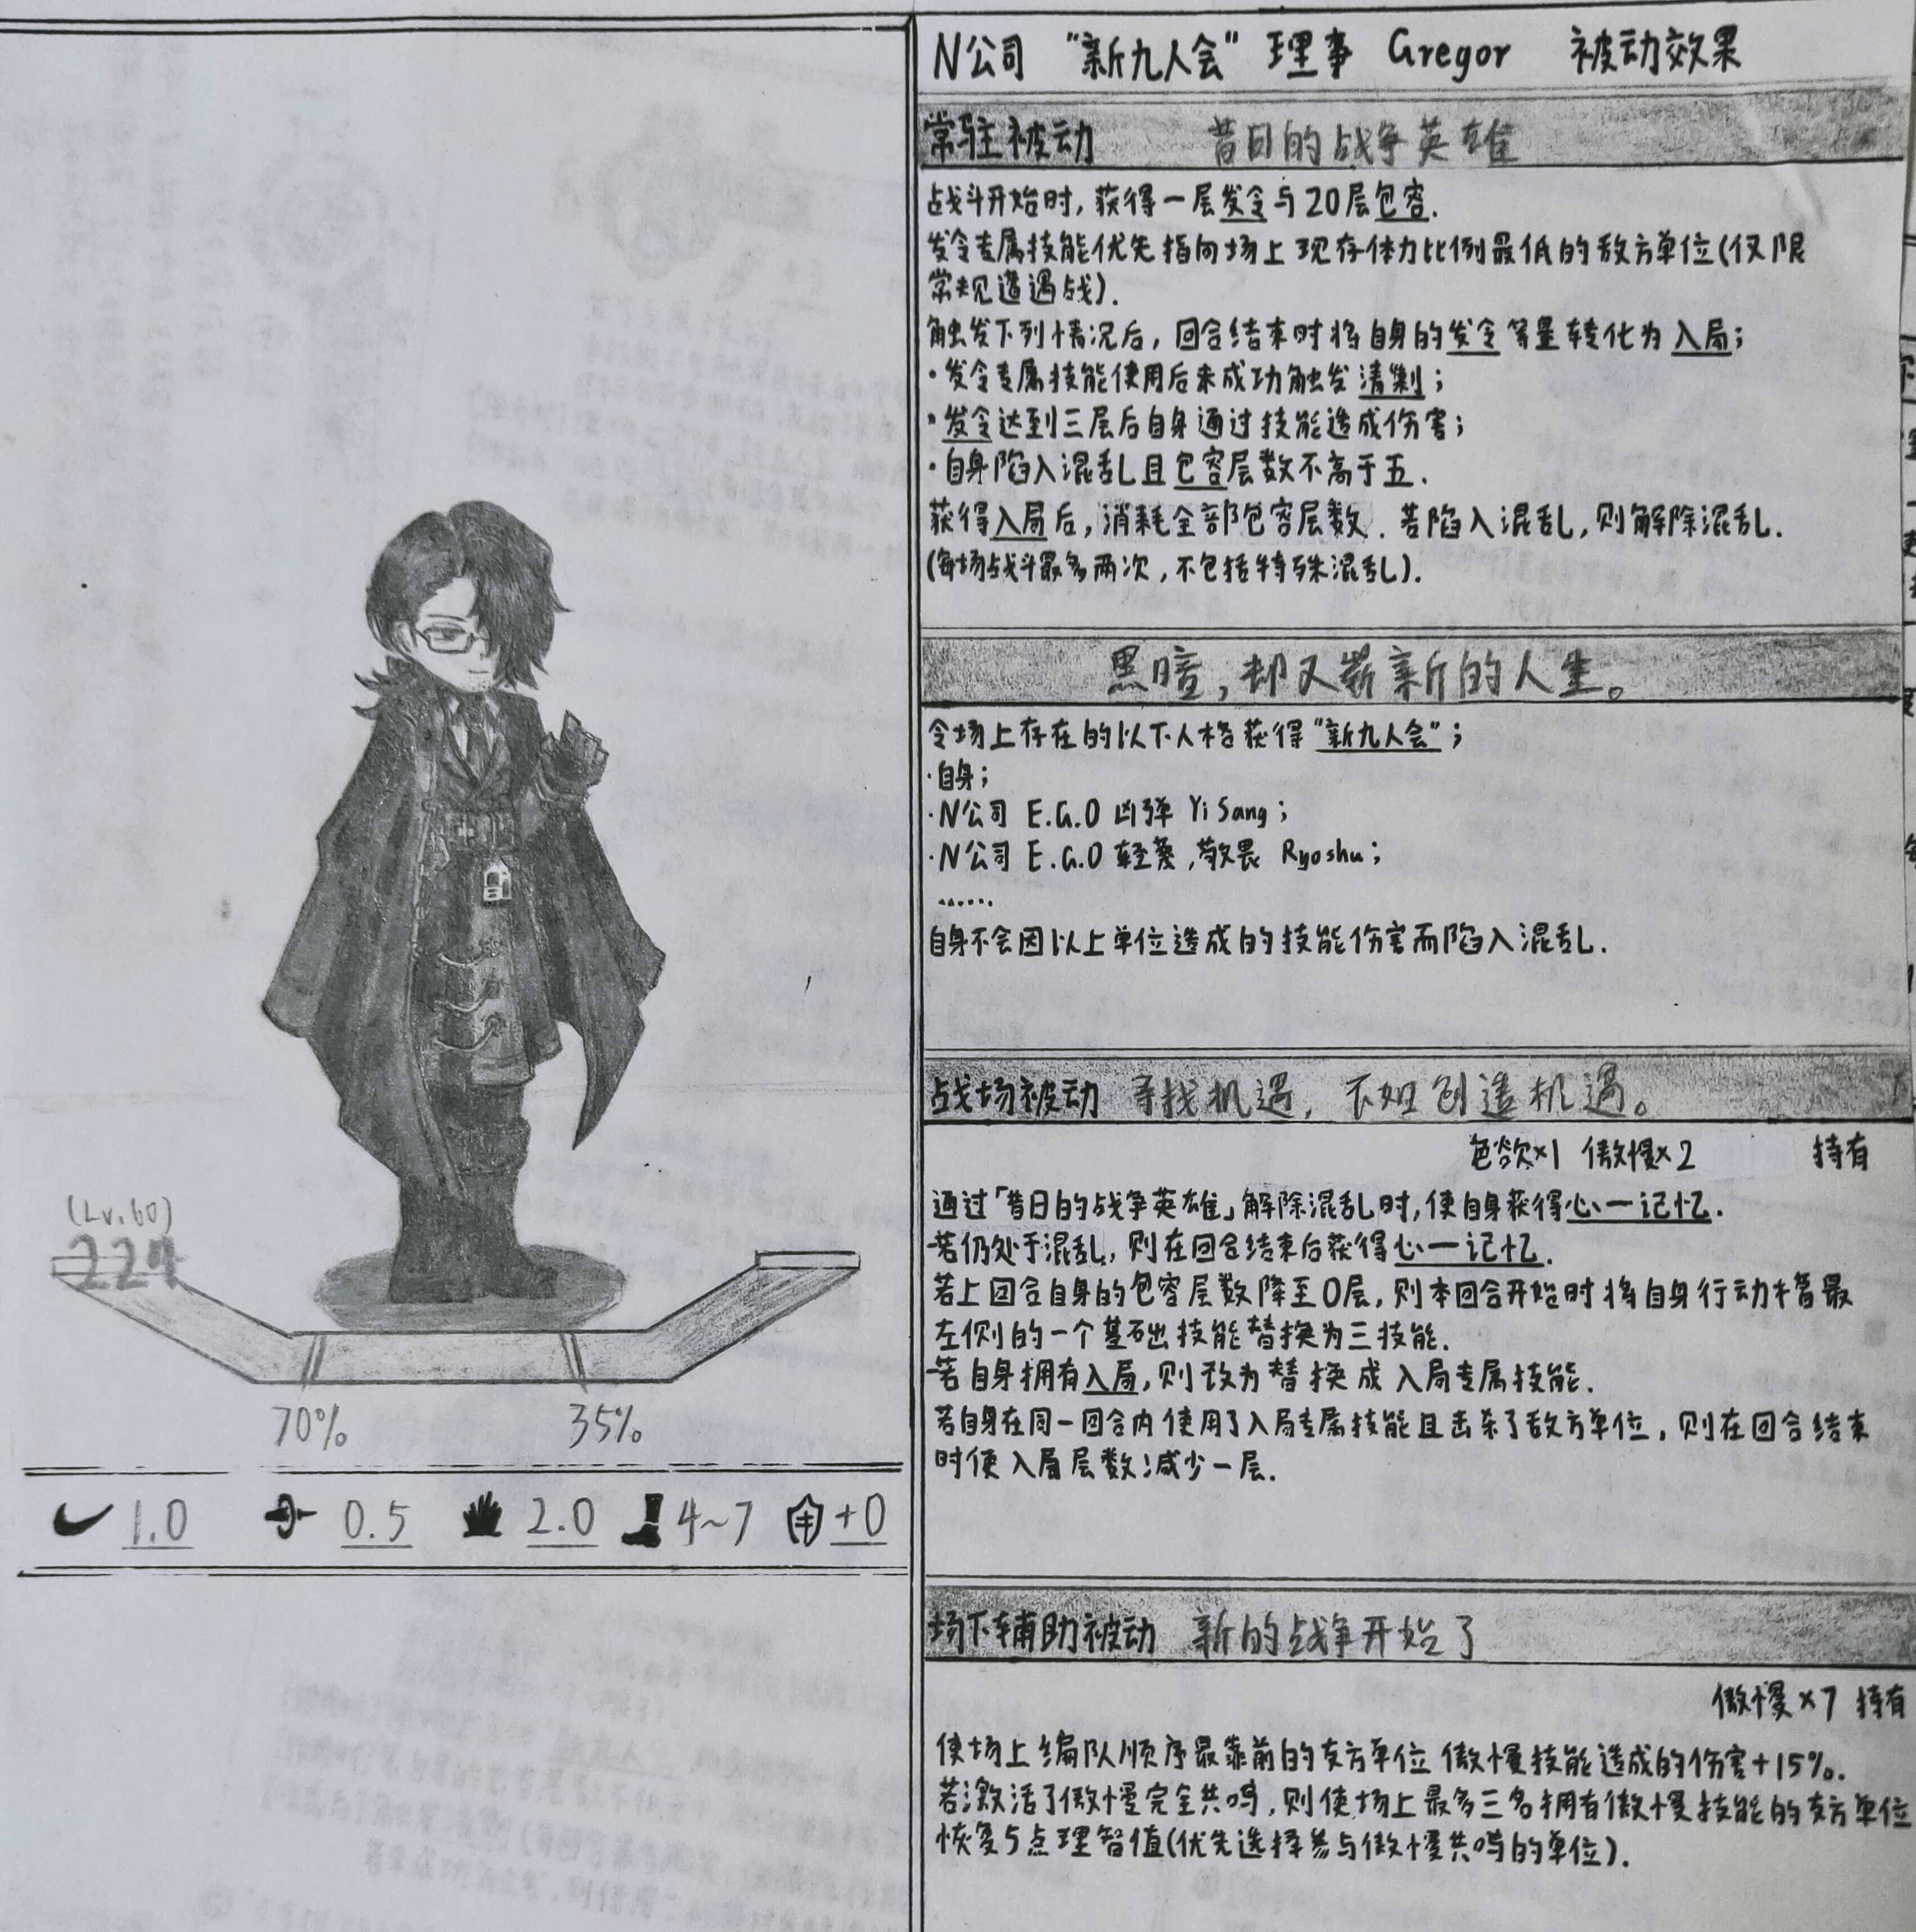 N公司 "新九人会" 理事 Gregor 被动效果
常驻被动 昔日的战争英雄
战斗开始时,获得一层发令与20层包容.
发令专属技能优先指向场上现存体力比例最低的敌方单位(仅限
常规遭遇战).
触发下列情况后,回合结束时将自身的发令等量转化为入局;
·发令专属技能使用后未成功触发清剿;
·发令达到三层后自身通过技能造成伤害;
·自身陷入混乱且包容层数不高于五.
获得入局后,消耗全部包容层数.若陷入混乱,则解除混乱.
(每场战斗最多两次,不包括特殊混乱).
黑暗,却又崭新的人生。
令场上存在的以下人格获得"新九人会";
·自身;
·N公司 E.G.O 凶弹 Yi Sang;
·N公司 E.G.O 轻蔑,敬畏 Ryoshu;
......
自身不会因以上单位造成的技能伤害而陷入混乱.
战场被动 寻找机遇, 不如创造机遇。
色欲×1 傲慢×2 持有
通过「昔日的战争英雄」解除混乱时,使自身获得心一记忆.
-若仍处于混乱,则在回合结束后获得心一记忆.
若上回合自身的包容层数降至0层,则本回合开始时将自身行动槽最
左侧的一个基础技能替换为三技能.
-若自身拥有入局,则改为替换成入局专属技能.
若自身在同一回合内使用了入局专属技能且击杀了敌方单位,则在回合结束
时使入局层数减少一层.
场下辅助被动 新的战争开始了
傲慢×7 持有
使场上编队顺序最靠前的友方单位傲慢技能造成的伤害+15%.
若激活了傲慢完全共鸣,则使场上最多三名拥有傲慢技能的友方单位
恢复5点理智值(优先选择参与傲慢共鸣的单位).
(Lv.60)
227
70% 35%
1.0 0.5 2.0 4~7 +0